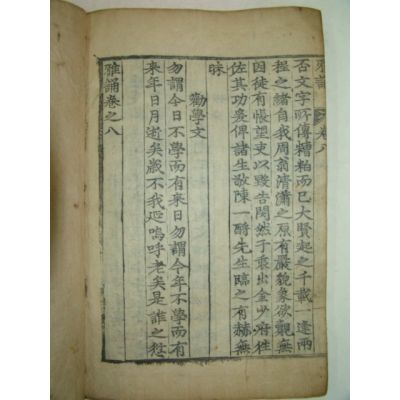 雅誦 卷八
否文字所傳糟粕而已大賢起之千載一逢兩
程之緖自我周翁清瀟之原有嚴貌象欲觀無
因徒有悵望吏以毀告閔然予衷出金少府徃
佐其功爰俾諸生敢陳一酹先生臨之有赫無
昧
勸學文
勿謂今日不學而有來日勿謂今年不學而有
来年日月逝矣歲不我延嗚呼老矣是誰之愆
雅誦卷之八